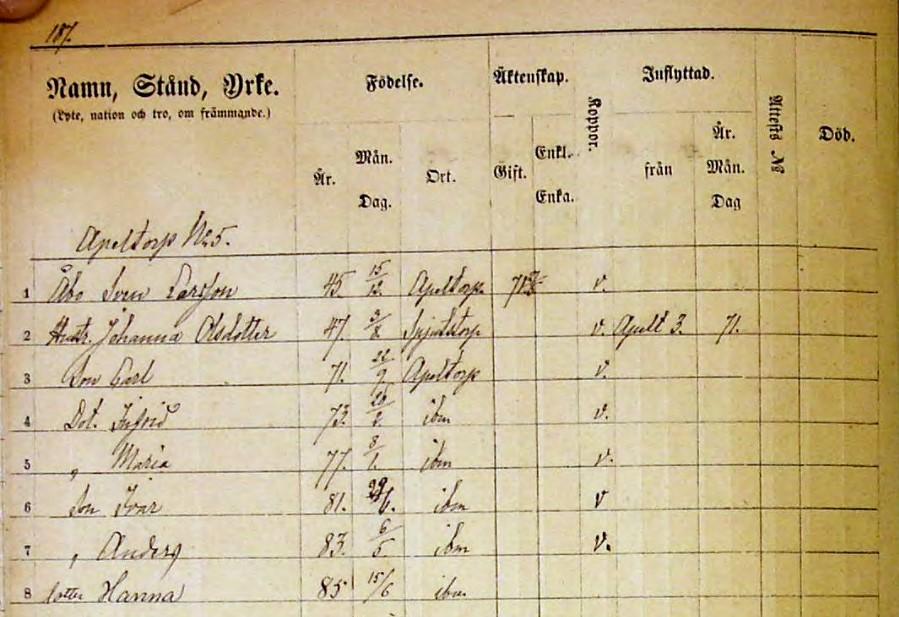 187.
Namn, Stånd, Yrke. Födelse. Äktenskap. Koppor. Inflyttad. Attest's № Död.
(Lyte, nation och tro, om främmande.)
År. Mån. Dag. Ort. Gift. Enkl. Enka. från År. Mån. Dag
Apeltorp No 5.
1 Åbo Sven Larsson 45. 15/12. Apeltorp 71 v.
2 Hustr. Johanna Olsdotter 47. 3/8. v. Apelt 3. 71.
3 Son Carl 71. 22/9 Apeltorp v.
4 Dot. Ingrid 73. ibm v.
5 „ Maria 77. 8/1. ibm v.
6 Son Ivar 81. 29/6. ibm v
7 „ Anders 83. 6/5 ibm v.
8 dotter Hanna 85 15/6 ibm